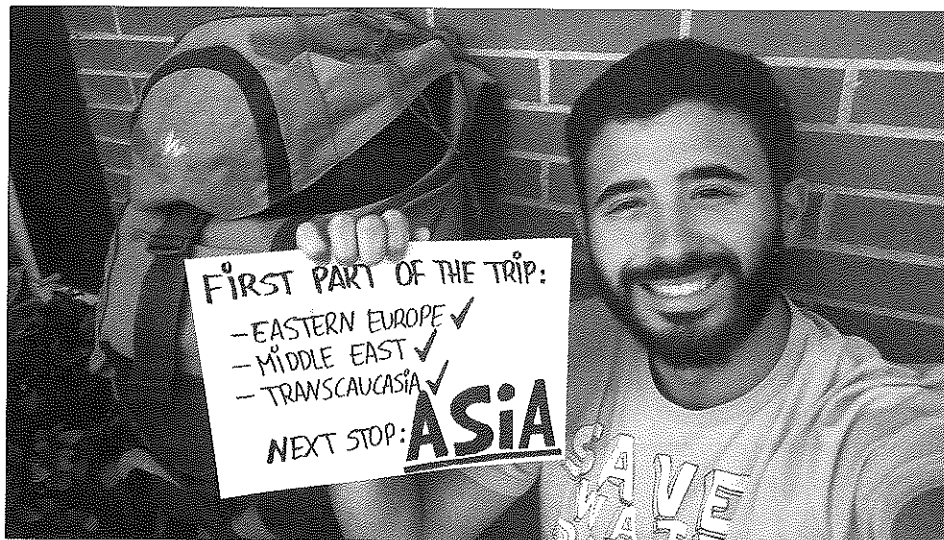 FiRST PART OF THE TRiP:
- EASTERN EUROPE ✓
- MiDDLE EAST ✓
- TRANSCAUCASiA ✓
NEXT STOP: ASiA
SAVE